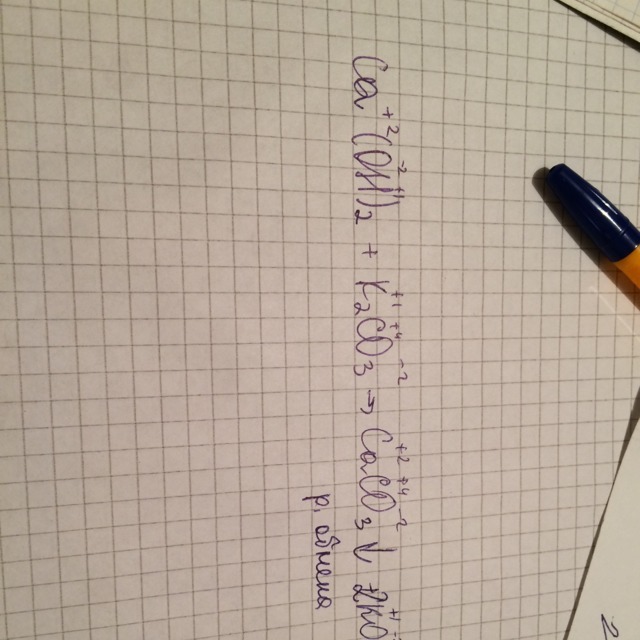 Ca⁺²(O⁻²H⁺¹)₂ + K₂⁺¹C⁺⁴O₃⁻² → Ca⁺²C⁺⁴O₃⁻²↓ + 2K⁺¹O
р. обмена
2